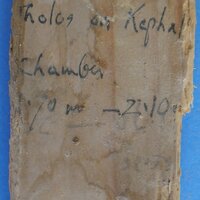 Tholos on Kephal
Chamber
.70 m — 2.10 m